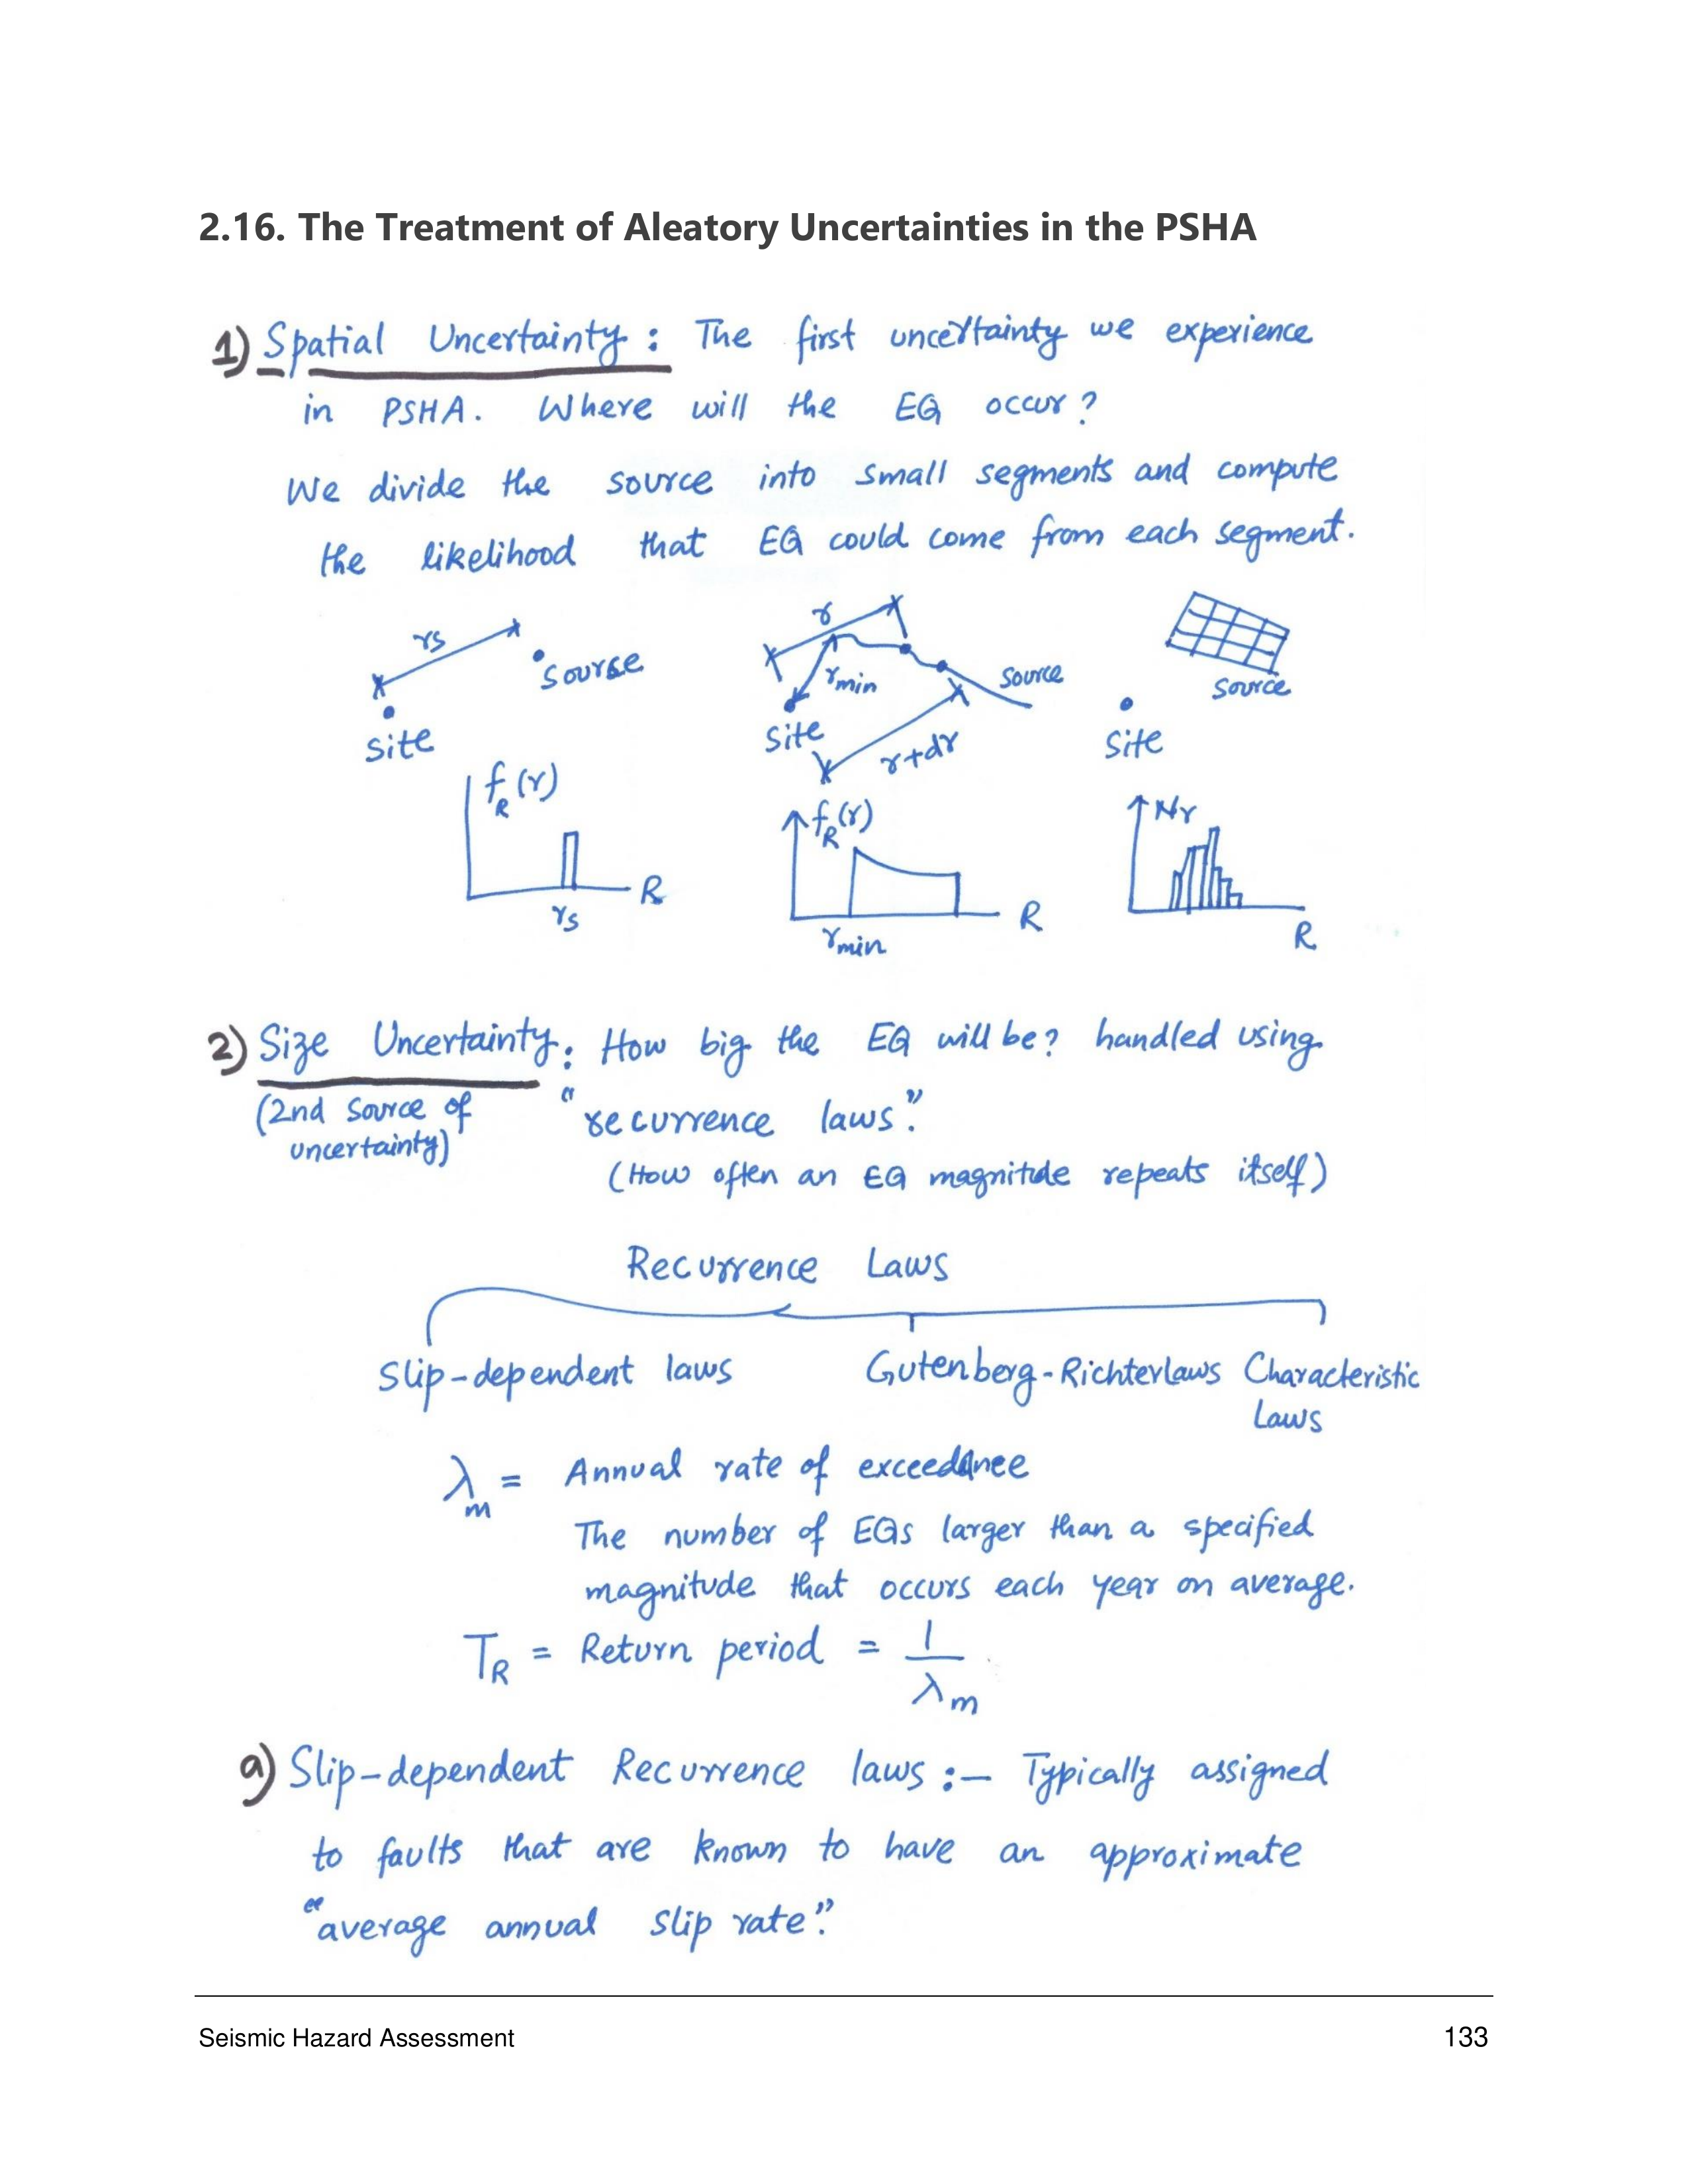 2.16. The Treatment of Aleatory Uncertainties in the PSHA
1) Spatial Uncertainty : The first uncertainty we experience
in PSHA. Where will the EQ occur?
We divide the source into small segments and compute
the likelihood that EQ could come from each segment.
rs
Source
Site
r
rmin
Source
Site
r+dr
Source
Site
fR(r)
R
rs
fR(r)
R
rmin
Nr
R
2) Size Uncertainty: How big the EQ will be? handled using
(2nd source of
uncertainty)
"recurrence laws."
(How often an EQ magnitude repeats itself)
Recurrence Laws
Slip-dependent laws Gutenberg-Richter laws Characteristic
Laws
λm = Annual rate of exceedance
The number of EQs larger than a specified
magnitude that occurs each year on average.
TR = Return period = 1/λm
a) Slip-dependent Recurrence laws :- Typically assigned
to faults that are known to have an approximate
"average annual slip rate."
Seismic Hazard Assessment 133